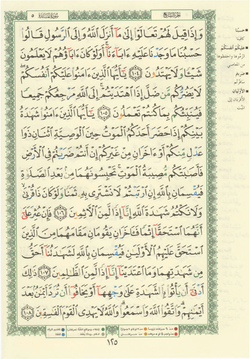 الجُزْءُ السَّابِعُ سُورَةُ المَائِدَةِ ٥
وَإِذَا قِيلَ لَهُمْ تَعَالَوْا۟ إِلَىٰ مَآ أَنزَلَ ٱللَّهُ وَإِلَى ٱلرَّسُولِ قَالُوا۟
حَسْبُنَا مَا وَجَدْنَا عَلَيْهِ ءَابَآءَنَآ أَوَلَوْ كَانَ ءَابَآؤُهُمْ لَا يَعْلَمُونَ
شَيْـًٔا وَلَا يَهْتَدُونَ ١٠٤ يَٰٓأَيُّهَا ٱلَّذِينَ ءَامَنُوا۟ عَلَيْكُمْ أَنفُسَكُمْ
لَا يَضُرُّكُم مَّن ضَلَّ إِذَا ٱهْتَدَيْتُمْ إِلَى ٱللَّهِ مَرْجِعُكُمْ جَمِيعًا
فَيُنَبِّئُكُم بِمَا كُنتُمْ تَعْمَلُونَ ١٠٥ يَٰٓأَيُّهَا ٱلَّذِينَ ءَامَنُوا۟ شَهَٰدَةُ
بَيْنِكُمْ إِذَا حَضَرَ أَحَدَكُمُ ٱلْمَوْتُ حِينَ ٱلْوَصِيَّةِ ٱثْنَانِ ذَوَا
عَدْلٍ مِّنكُمْ أَوْ ءَاخَرَانِ مِنْ غَيْرِكُمْ إِنْ أَنتُمْ ضَرَبْتُمْ فِى ٱلْأَرْضِ
فَأَصَٰبَتْكُم مُّصِيبَةُ ٱلْمَوْتِ تَحْبِسُونَهُمَا مِنۢ بَعْدِ ٱلصَّلَوٰةِ
فَيُقْسِمَانِ بِٱللَّهِ إِنِ ٱرْتَبْتُمْ لَا نَشْتَرِى بِهِۦ ثَمَنًا وَلَوْ كَانَ ذَا قُرْبَىٰ
وَلَا نَكْتُمُ شَهَٰدَةَ ٱللَّهِ إِنَّآ إِذًا لَّمِنَ ٱلْـَٔاثِمِينَ ١٠٦ فَإِنْ عُثِرَ عَلَىٰٓ
أَنَّهُمَا ٱسْتَحَقَّآ إِثْمًا فَـَٔاخَرَانِ يَقُومَانِ مَقَامَهُمَا مِنَ ٱلَّذِينَ
ٱسْتَحَقَّ عَلَيْهِمُ ٱلْأَوْلَيَٰنِ فَيُقْسِمَانِ بِٱللَّهِ لَشَهَٰدَتُنَآ أَحَقُّ
مِن شَهَٰدَتِهِمَا وَمَا ٱعْتَدَيْنَآ إِنَّآ إِذًا لَّمِنَ ٱلظَّٰلِمِينَ ١٠٧ ذَٰلِكَ
أَدْنَىٰٓ أَن يَأْتُوا۟ بِٱلشَّهَٰدَةِ عَلَىٰ وَجْهِهَآ أَوْ يَخَافُوٓا۟ أَن تُرَدَّ أَيْمَٰنٌۢ بَعْدَ
أَيْمَٰنِهِمْ وَٱتَّقُوا۟ ٱللَّهَ وَٱسْمَعُوا۟ وَٱللَّهُ لَا يَهْدِى ٱلْقَوْمَ ٱلْفَٰسِقِينَ ١٠٨
١٢٥